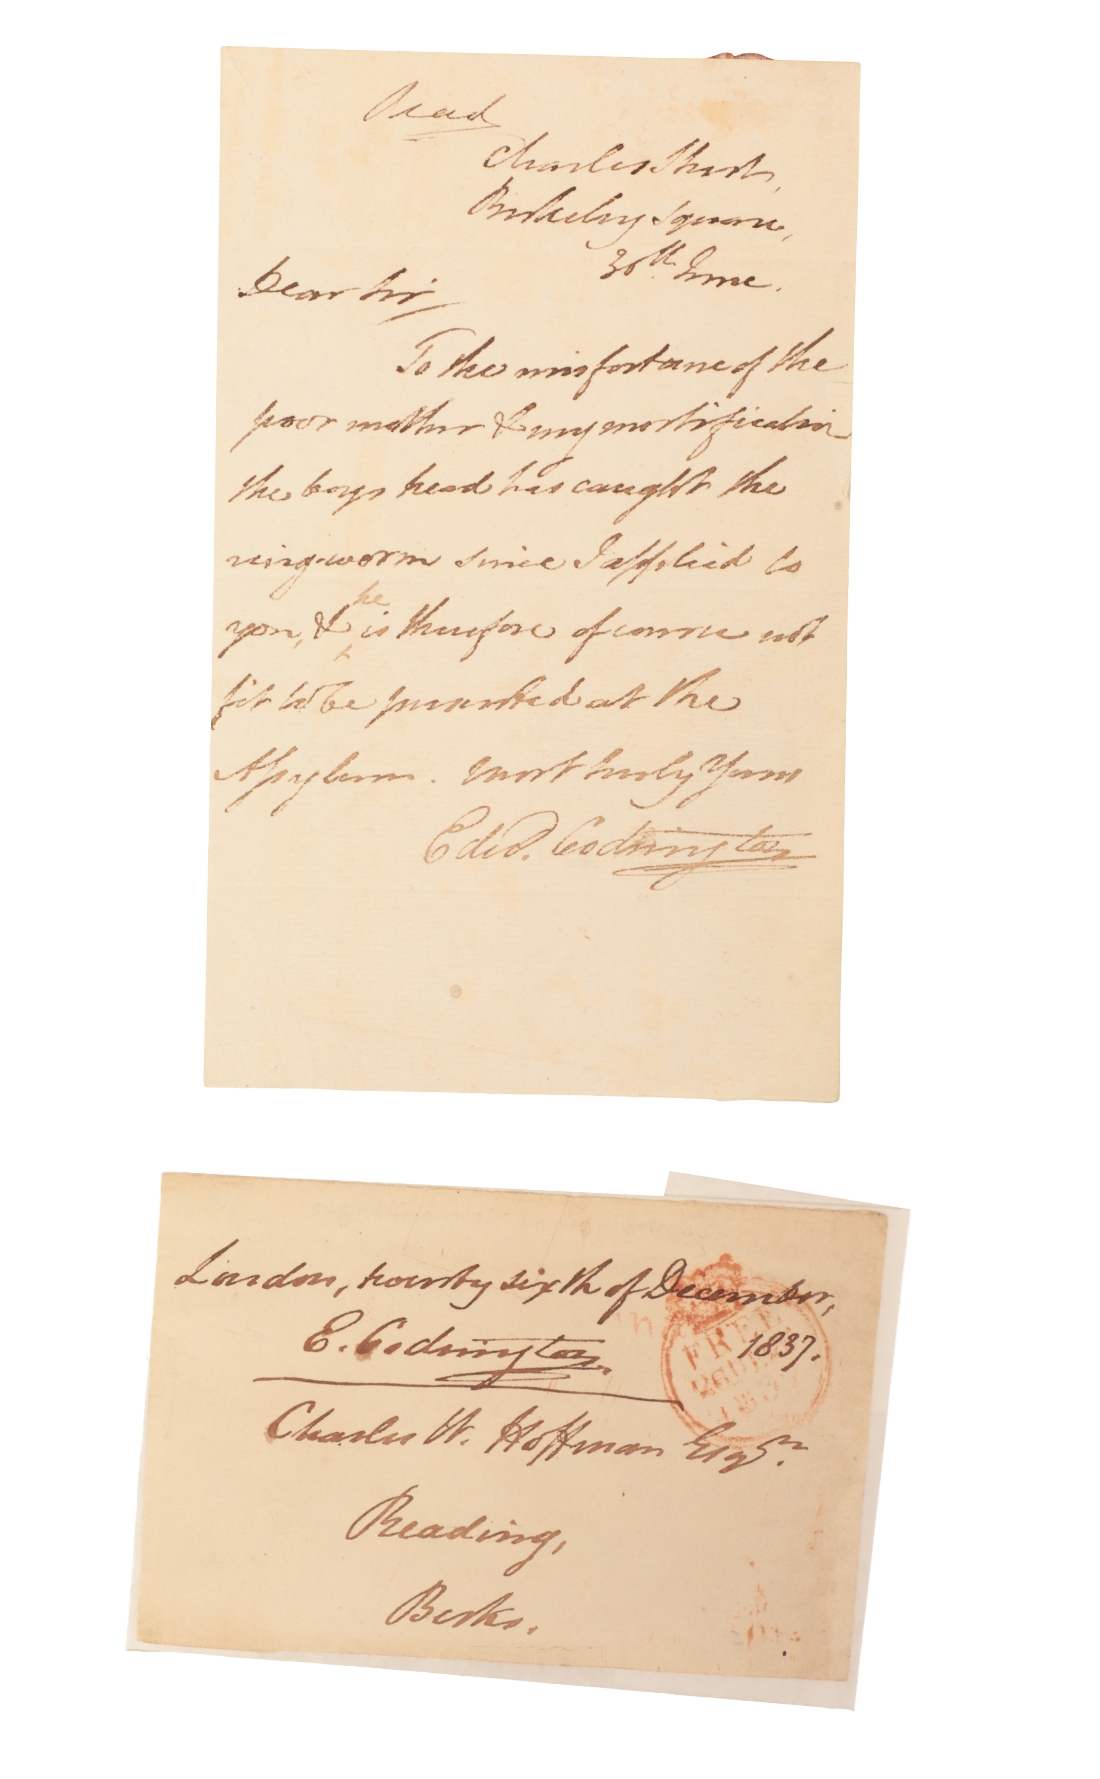 Read
Charles Street,
Berkeley Square,
30th June.
Dear Sir,
To the misfortune of the
poor mother & my mortification
the boys head has caught the
ringworm since I applied to
you, & he is therefore of course not
fit to be presented at the
Asylum. Most truly Yours
Edwd. Codrington
London, twenty sixth of December,
1837.
E. Codrington.
FREE
26DE26
1837
Charles W. Hoffman Esqr.
Reading,
Berks.